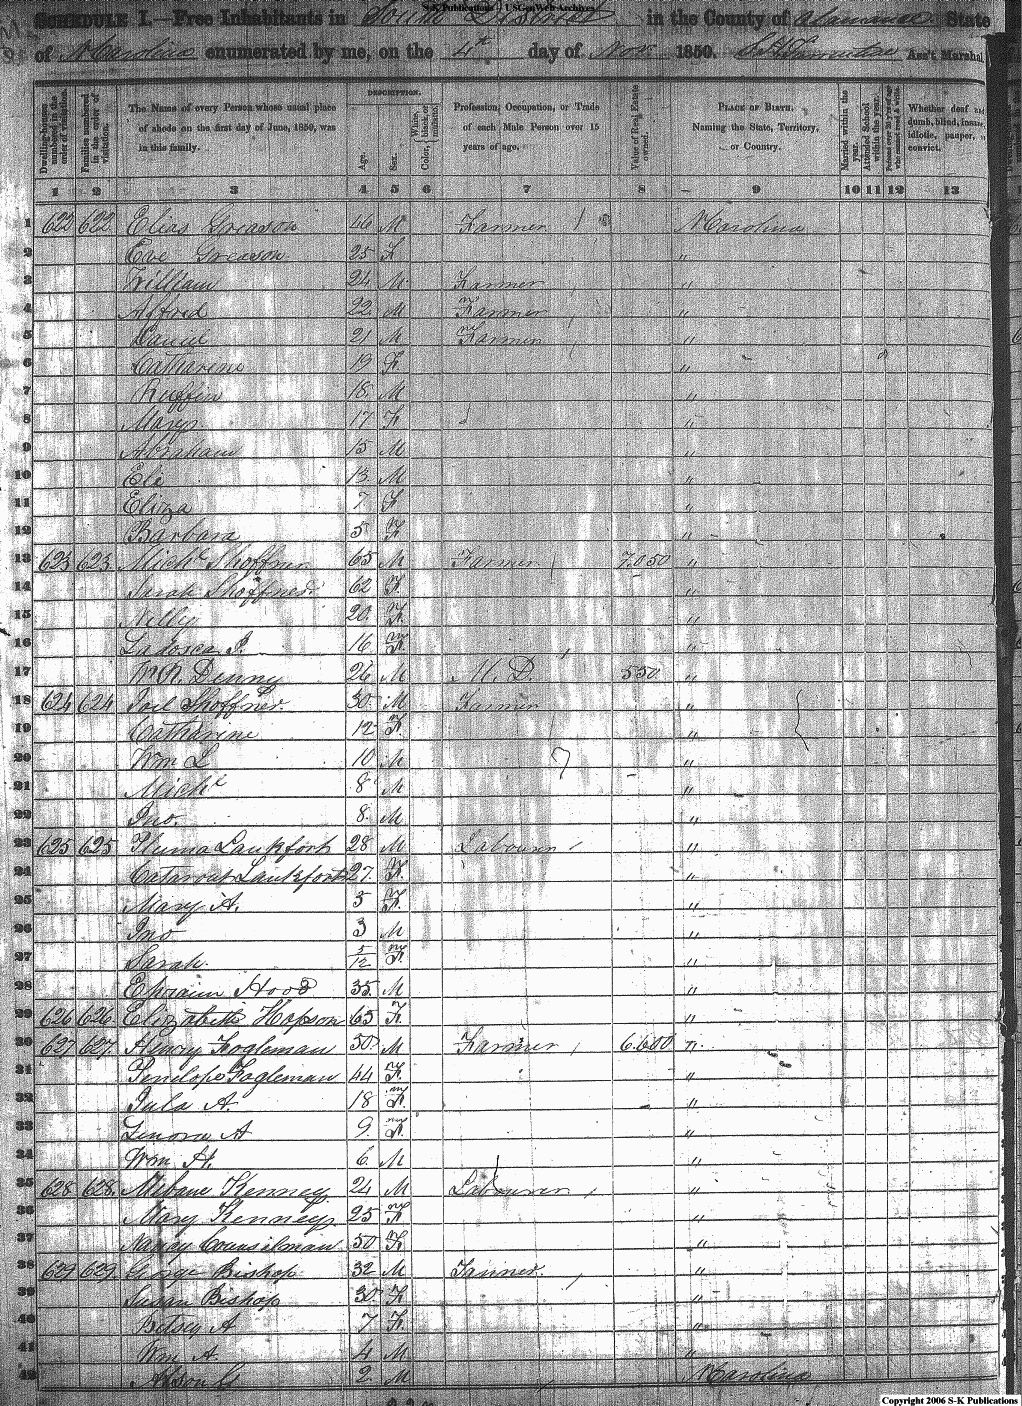 S-K Publications - USGenWeb Archives
SCHEDULE I.—Free Inhabitants in South District in the County of Alamance State
of N Carolina enumerated by me, on the 4th day of Nov 1850. Ass't Marshal.
Dwelling-houses numbered in the order of visitation.
Families numbered in the order of visitation.
The Name of every Person whose usual place of abode on the first day of June, 1850, was in this family.
DESCRIPTION.
Age.
Sex.
Color, { White, black, or mulatto.
Profession, Occupation, or Trade of each Male Person over 15 years of age.
Value of Real Estate owned.
PLACE OF BIRTH. Naming the State, Territory, or Country.
Married within the year.
Attended School within the year.
Persons over 20 y'rs of age who cannot read & write.
Whether deaf and dumb, blind, insane, idiotic, pauper, or convict.
1 2 3 4 5 6 7 8 9 10 11 12 13
1 622 622 Elias Greason 46 M Farmer N Carolina
2 Eve Greason 25 F "
3 William 24 M Farmer "
4 Alfred 22 M Farmer "
5 Daniel 21 M Farmer "
6 Catharine 19 F "
7 Ruffin 18 M "
8 Mary 17 F "
9 Abraham 15 M "
10 Ele 13 M "
11 Eliza 7 F "
12 Barbara 5 F "
13 623 623 Michl Shoffner 65 M Farmer 7.050 "
14 Sarah Shoffner 62 F "
15 Nelly 20 F "
16 Ladosca 16 F "
17 Denny 26 M M. D. 550 "
18 624 624 Joel Shoffner 30 M Farmer "
19 Catharine 12 F "
20 Wm L 10 M "
21 Michl 8 M "
22 Jno. 8 M "
23 625 625 Lankfort 28 M Labourer "
24 Lankfort 27 F "
25 Mary A. 5 F "
26 Jno 3 M "
27 Sarah 5/12 F "
28 Ephraim Hood 35 M "
29 626 626 Elizabeth Hopson 65 F "
30 627 627 Henry Fogleman 50 M Farmer 6.600 "
31 Penelope Fogleman 44 F "
32 Jula A. 18 F "
33 Lenora A 9 F "
34 Wm H. 6 M "
35 628 628 Mebane Kenney 24 M Labourer "
36 Mary Kenney 25 F "
37 Nancy Councilman 50 F "
38 629 629 George Bishop 32 M Tanner "
39 Susan Bishop 30 F "
40 Betsey A 7 F "
41 Wm A. 4 M "
42 Alson G 2 M N Carolina
Copyright 2006 S-K Publications